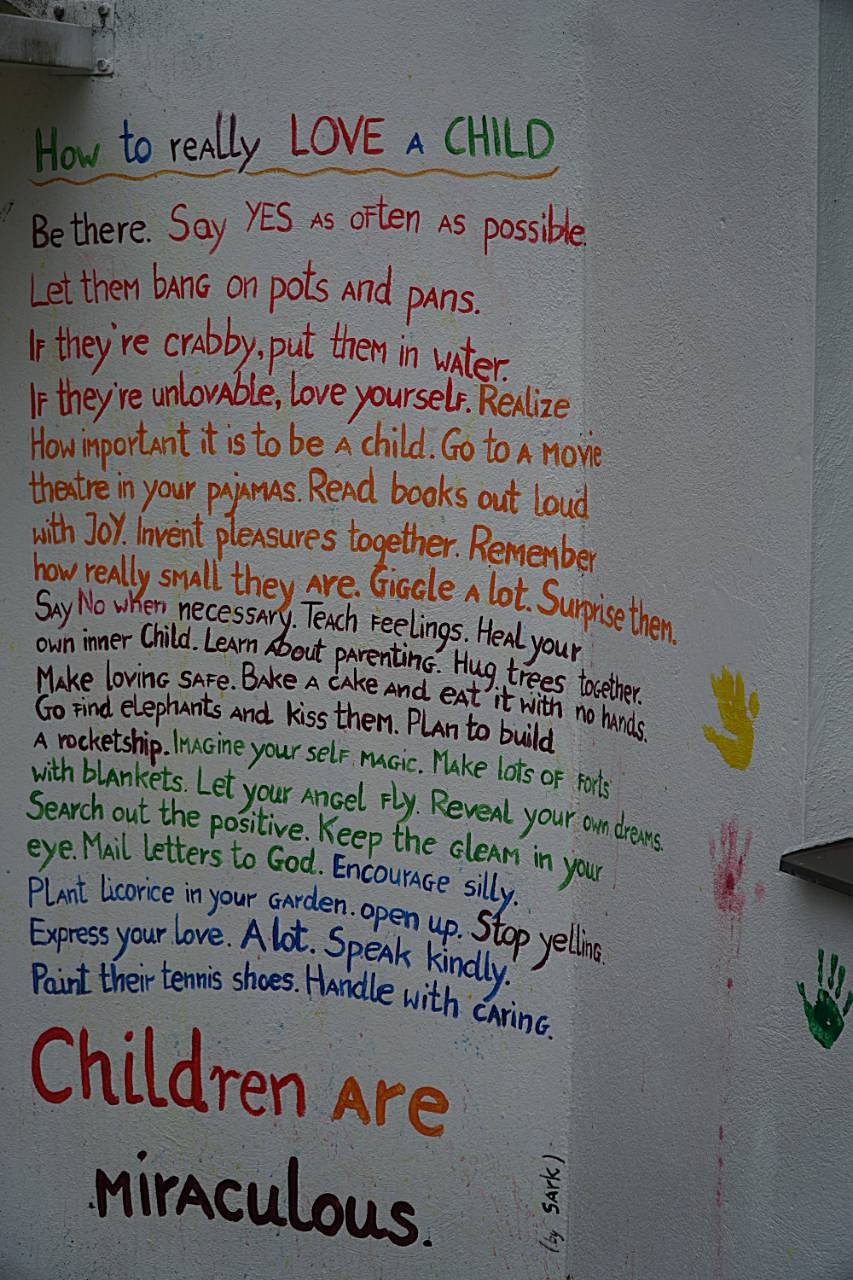 How to really LOVE A CHILD
Be there. Say YES AS OFten AS possible.
Let them BANG on pots and pans.
IF they're crabby, put them in water.
IF they're unlovable, love yourself. Realize
How important it is to be A child. Go to A Movie
theatre in your pajamas. Read books out loud
with JOY. Invent pleasures together. Remember
how really SMALL they ARE. Giggle A lot. Surprise them.
Say No when necessary. Teach Feelings. Heal your
own inner Child. Learn About parenting. Hug trees together.
Make loving SAFE. Bake A cake and eat it with no hands.
Go Find elephants and kiss them. Plan to build
A rocketship. Imagine your self magic. Make lots of Forts
with blankets. Let your Angel Fly. Reveal your own dreams.
Search out the positive. Keep the Gleam in your
eye. Mail letters to God. Encourage silly.
Plant licorice in your Garden. open up. Stop yelling.
Express your love. A lot. Speak kindly.
Paint their tennis shoes. Handle with caring.
Children Are
Miraculous.
(by SARK)